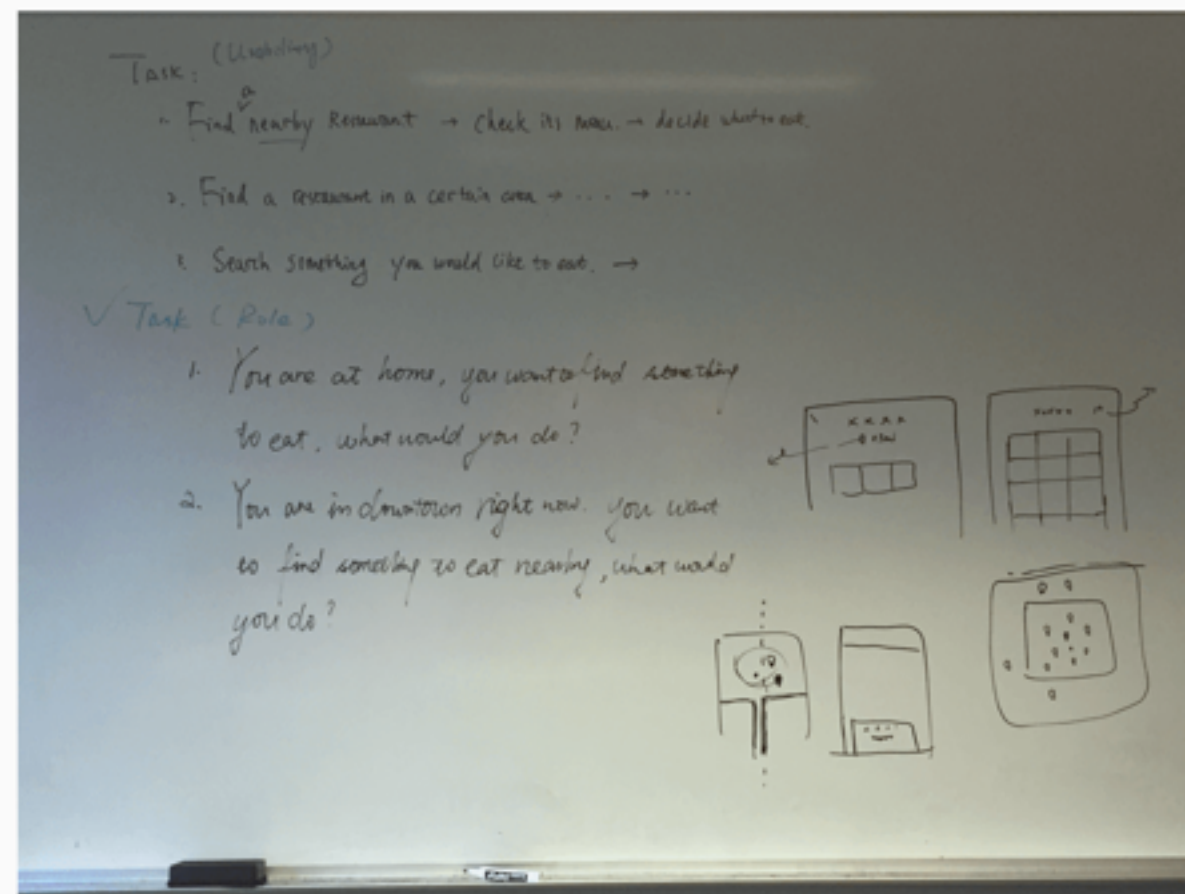 Task:
1. Find a nearby Restaurant → check its menu. → decide what to eat.
2. Find a restaurant in a certain area → .... → ...
3. Search something you would like to eat. →
✓ Task (Role)
1. You are at home, you want to find something
to eat. what would you do?
2. You are in downtown right now. you want
to find something to eat nearby, what would
you do?